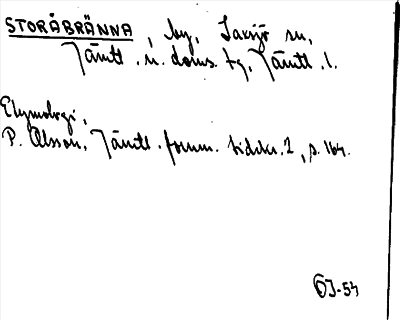 STORÅBRÄNNA, by, Laxsjö sn,
Jämtl. n. doms. tg, Jämtl. l.
Etymologi,
P. Olsson, Jämtl. fornm. tidskr. 2, s. 164.
ÖJ-54